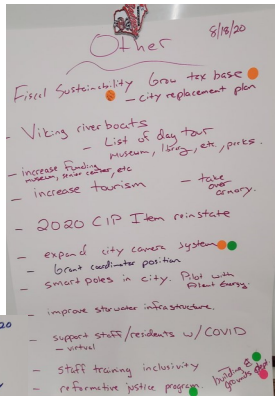 8/18/20
Other
Fiscal Sustainability Grow tax base
- city replacement plan
- Viking riverboats
- List of day tour
museum, library, etc, parks.
- increase funding
museum, senior center, etc
- increase tourism
- take over armory.
- 2020 CIP Item reinstate
- expand city camera system
- Grant coordinator position
- smart poles in city. Pilot with
Energy.
- improve storwater infrastructure.
- support staff/residents w/ COVID
- virtual
- staff training inclusivity
- reformative justice program.
building &
grounds dept
20